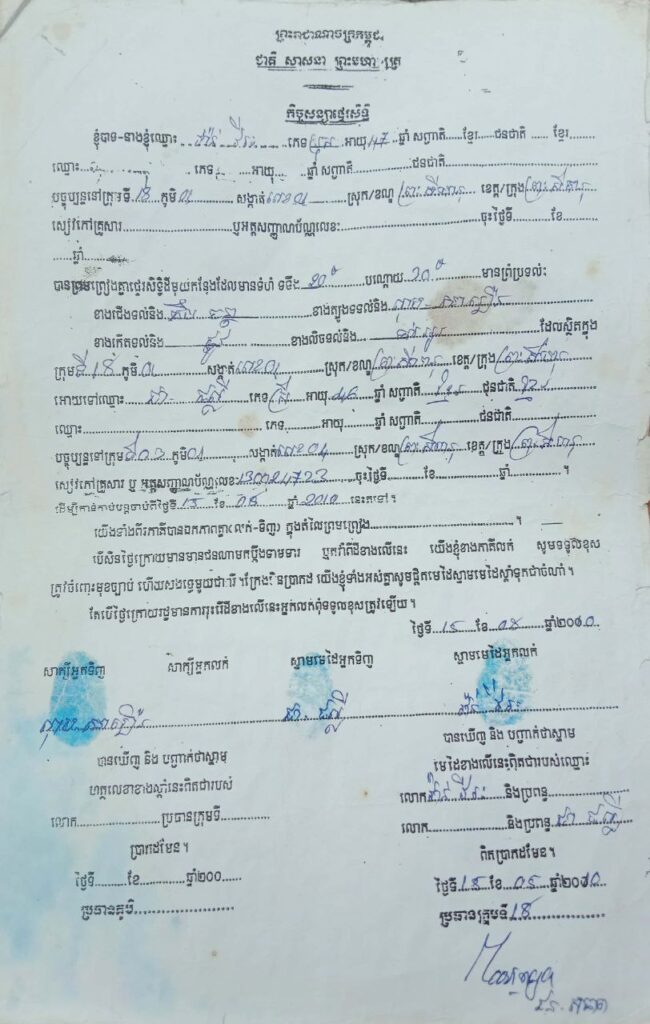 ព្រះរាជាណាចក្រកម្ពុជា
ជាតិ សាសនា ព្រះមហា ត្រ
កិច្ចសន្យាផ្ទេរសិទ្ធិ
ខ្ញុំបាទ-នាងខ្ញុំឈ្មោះ ភេទ ប្រុស អាយុ 47 ឆ្នាំ សញ្ជាតិ ខ្មែរ ជនជាតិ ខ្មែរ
ឈ្មោះ ភេទ អាយុ ឆ្នាំ សញ្ជាតិ ជនជាតិ
បច្ចុប្បន្ននៅក្រុមទី 18 ភូមិ 01 សង្កាត់លេខ 01 ស្រុក/ខណ្ឌ ព្រះសីហនុ ខេត្ត/ក្រុង ព្រះសីហនុ
សៀវភៅគ្រួសារ ឬអត្តសញ្ញាណប័ណ្ណលេខ: ចុះថ្ងៃទី ខែ
ឆ្នាំ
បានព្រមព្រៀងគ្នាផ្ទេរសិទ្ធិដីមួយកន្លែងដែលមានទំហំ ទទឹង បណ្តោយ មានព្រំប្រទល់:
ខាងជើងទល់នឹង ខាងត្បូងទល់នឹង
ខាងកើតទល់នឹង ផ្លូវ ខាងលិចទល់នឹង ដែលស្ថិតក្នុង
ក្រុមទី 18 ភូមិ 01 សង្កាត់លេខ 01 ស្រុក/ខណ្ឌ ព្រះសីហនុ ខេត្ត/ក្រុង ព្រះសីហនុ
អោយទៅឈ្មោះ ជា ភេទ ស្រី អាយុ 46 ឆ្នាំ សញ្ជាតិ ខ្មែរ ជនជាតិ ខ្មែរ
ឈ្មោះ ភេទ អាយុ ឆ្នាំ សញ្ជាតិ ជនជាតិ
បច្ចុប្បន្ននៅក្រុម ភូមិ សង្កាត់លេខ 04 ស្រុក/ខណ្ឌ ព្រះសីហនុ ខេត្ត/ក្រុង ព្រះសីហនុ
សៀវភៅគ្រួសារ ឬ អត្តសញ្ញាណប័ណ្ណលេខ: ចុះថ្ងៃទី ខែ ឆ្នាំ
ដើម្បីកាន់កាប់បន្តចាប់ពីថ្ងៃទី 15 ខែ 05 ឆ្នាំ 2010 នេះតទៅ។
យើងទាំងពីរភាគីបានឯកភាពគ្នា(លក់-ទិញ) ក្នុងតំលៃព្រមព្រៀង ។
បើសិនថ្ងៃក្រោយមានមានជនណាមកប្តឹងទាមទារ ឬតវ៉ាពីដីខាងលើនេះ យើងខ្ញុំខាងភាគីលក់ សូមទទួលខុស
ត្រូវចំពោះមុខច្បាប់ ហើយសងទ្វេមួយជាពីរ។ ក្រែងមិនប្រាកដ យើងខ្ញុំទាំងអស់គ្នាសូមផ្តិតមេដៃស្នាមមេដៃស្តាំទុកជាចំណាំ។
តែបើថ្ងៃក្រោយរដ្ឋមានការរុះរើដីខាងលើនេះអ្នកលក់ពុំទទួលខុសត្រូវឡើយ។
ថ្ងៃទី 15 ខែ 05 ឆ្នាំ២០10
សាក្សីអ្នកទិញ សាក្សីអ្នកលក់ ស្នាមមេដៃអ្នកទិញ ស្នាមមេដៃអ្នកលក់
ជា
បានឃើញ និង បញ្ជាក់ថាស្នាម
ហត្ថលេខាខាងស្តាំនេះពិតជារបស់
លោក ប្រធានក្រុមទី
ប្រាកដមែន។
ថ្ងៃទី ខែ ឆ្នាំ២០០
ប្រធានភូមិ
បានឃើញ និង បញ្ជាក់ថាស្នាម
មេដៃខាងលើនេះពិតជារបស់ឈ្មោះ
លោក និងប្រពន្ធ
លោក និងប្រពន្ធ ជា
ពិតប្រាកដមែន។
ថ្ងៃទី 15 ខែ 05 ឆ្នាំ២០10
ប្រធានក្រុមទី 18